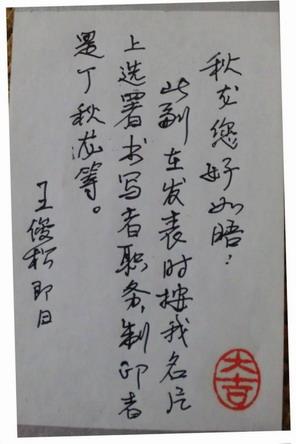 秋龙您好如晤：
此副在发表时按我名片
上选署书写者职务，制印者
是丁秋滋等。
王俊松即日
大吉